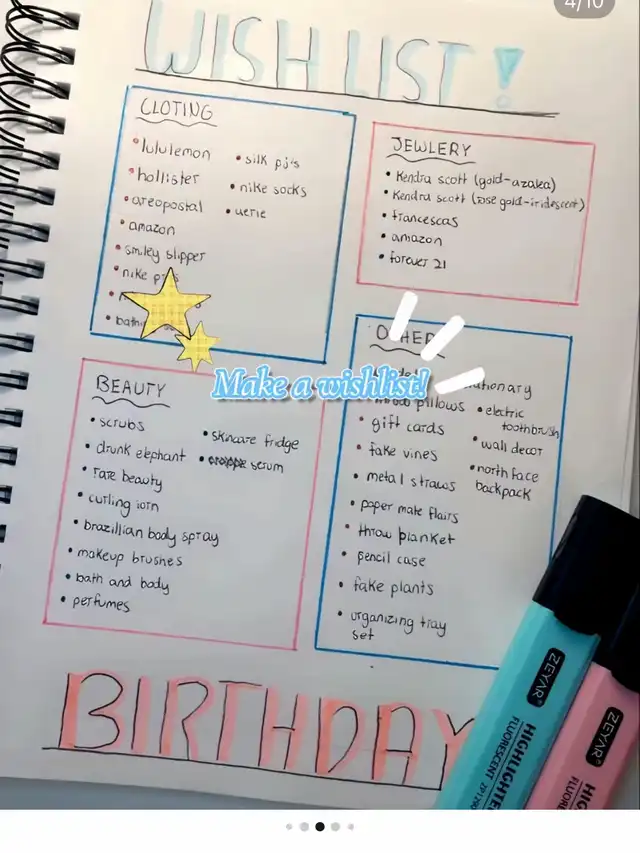 4/10
WISH LIST!
CLOTING
• lululemon
• hollister
• areopostal
• amazon
• smiley slipper
• nike
•
• bath
• silk pj's
• nike socks
• uerie
JEWLERY
• Kendra scott (gold-azalea)
• Kendra scott (rose gold-iridescent)
• francescas
• amazon
• forever 21
Make a wishlist!
BEAUTY
• scrubs
• drunk elephant
• rare beauty
• curling iorn
• brazillian body spray
• makeup brushes
• bath and body
• perfumes
• skincare fridge
• serum
OTHER
pillows
• gift cards
• fake vines
• metal straws
• paper mate flairs
• throw blanket
• pencil case
• fake plants
• organizing tray
set
tionary
• electric
toothbrush
• wall decor
• north face
backpack
BIRTHDAY
ZEYAR®
HIGHLIGHTE
FLUORESCENT
ZEYAR®
HIG
FLUORE